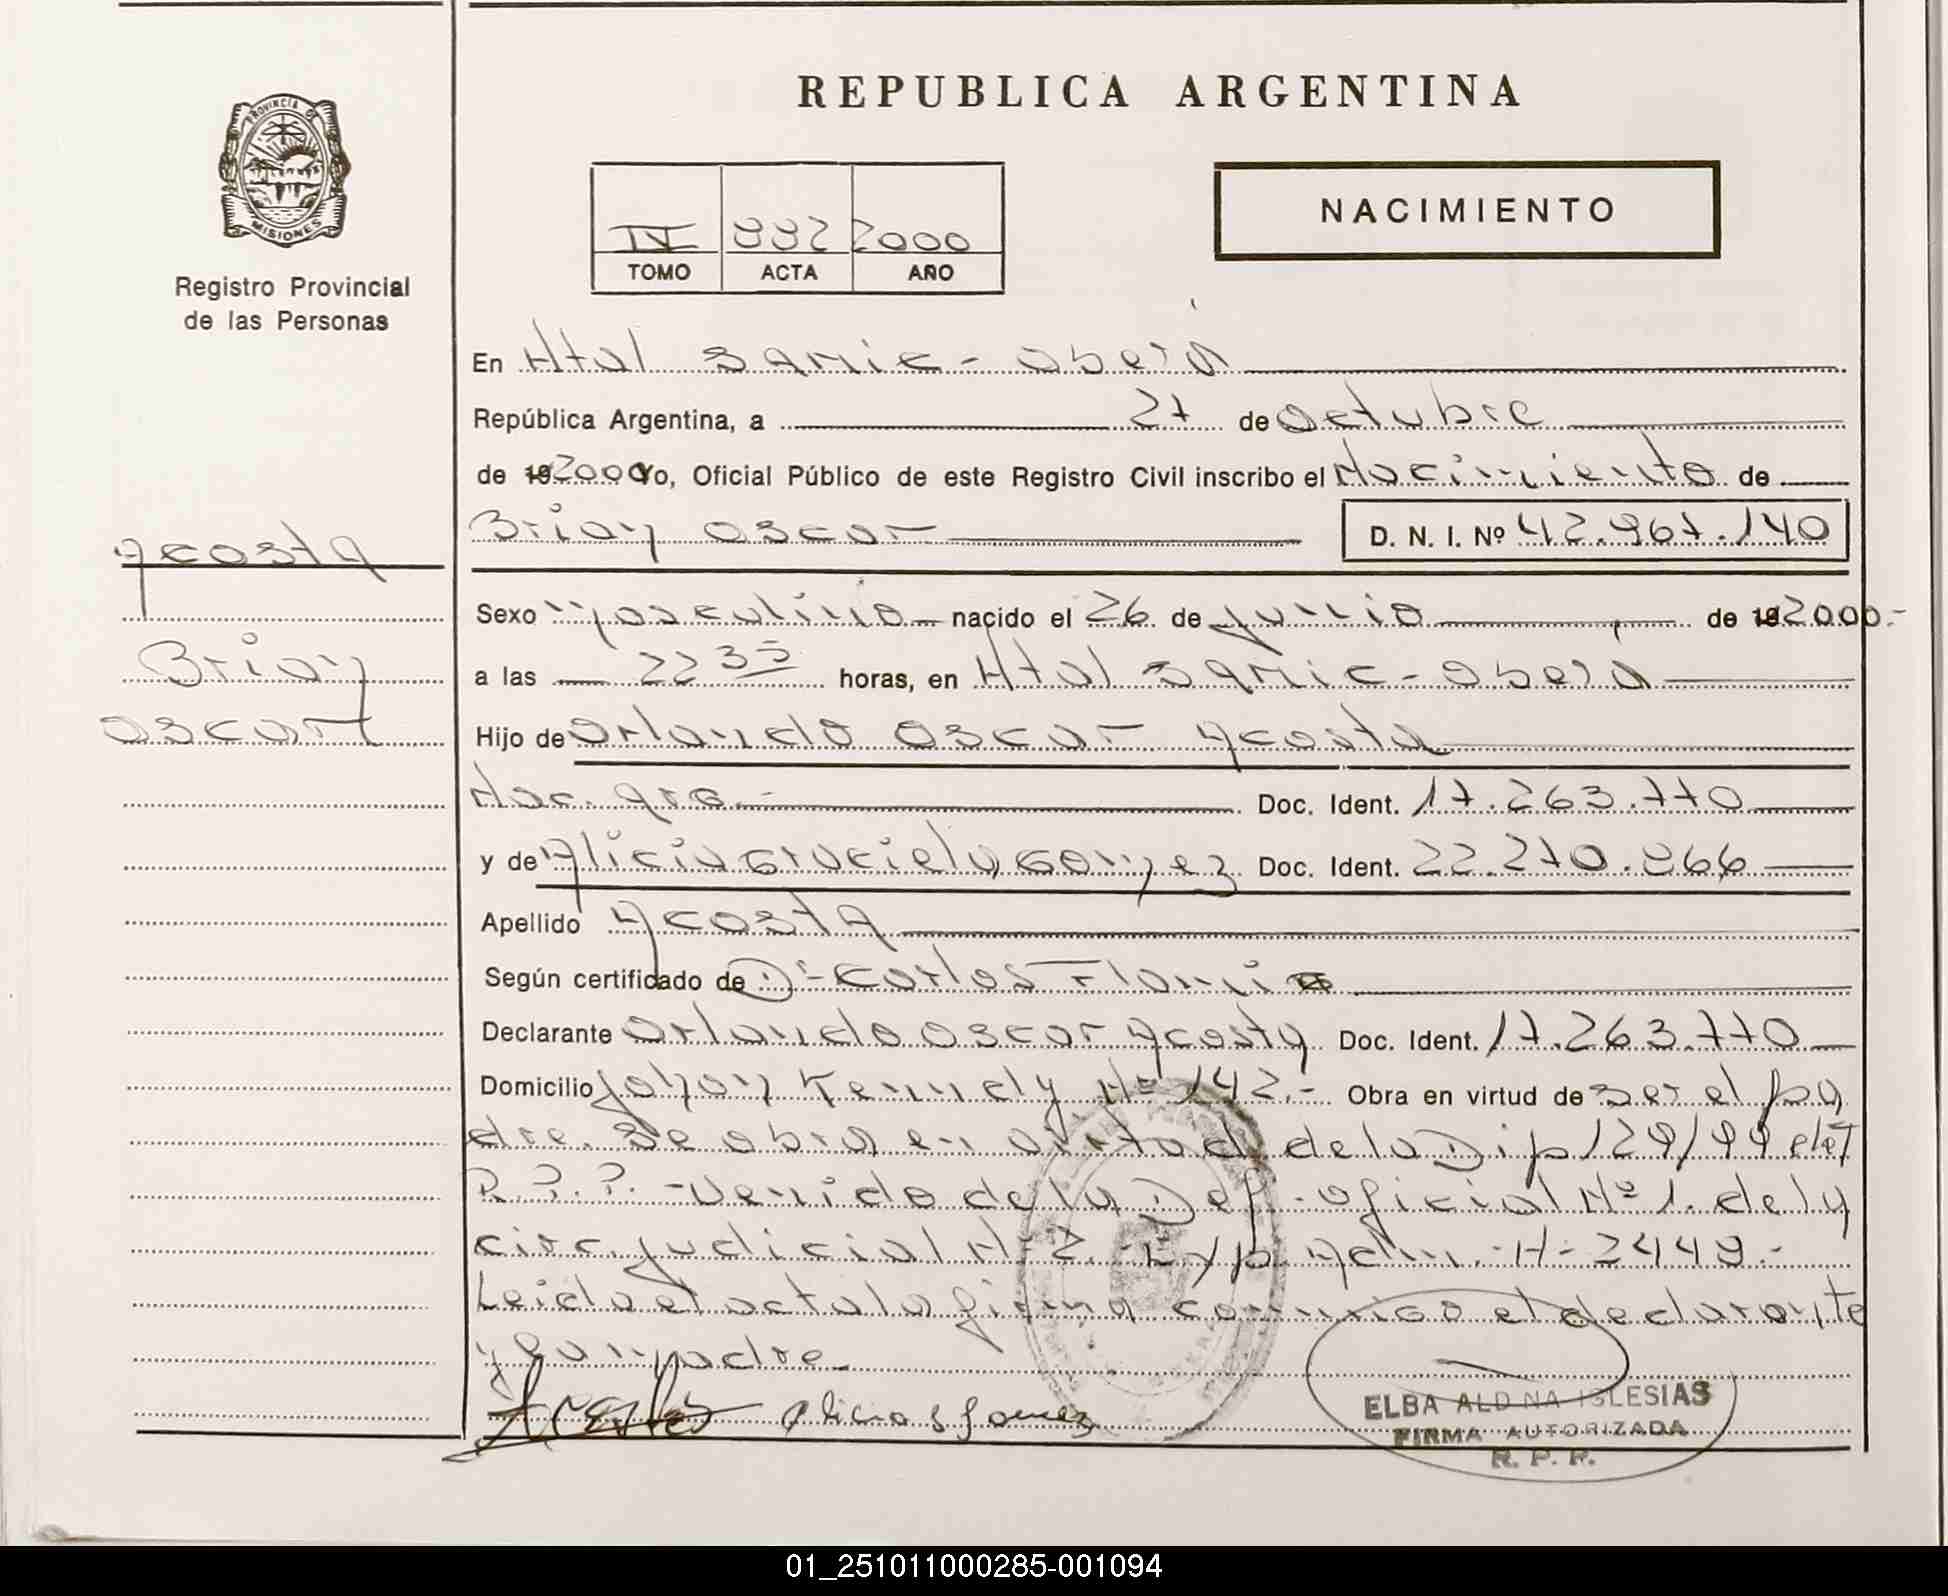 REPUBLICA ARGENTINA
PROVINCIA DE
MISIONES
Registro Provincial
de las Personas
IV 882 2000
TOMO ACTA AÑO
NACIMIENTO
En Htal Samic - Oberá
República Argentina, a 27 de Octubre
de 192000 Yo, Oficial Público de este Registro Civil inscribo el Nacimiento de
Brian Oscar D. N. I. Nº 42.967.140
Acosta
Brian
Oscar
Sexo Masculino nacido el 26 de Junio de 192000.-
a las 22 35 horas, en Htal Samic - Oberá
Hijo de Orlando Oscar Acosta
Nac. Arg.- Doc. Ident. 17.263.770
y de Alicia Graciela Gomez Doc. Ident. 22.270.866
Apellido Acosta
Según certificado de Dr Carlos
Declarante Orlando Oscar Acosta Doc. Ident. 17.263.770
Domicilio Jhon Kennedy Nº 142.- Obra en virtud de ser el pa
dre. Se obra en virtud de la Dip 129/99 del
R.P.P. - venido de la Def. oficial Nº 1. de la
circ. judicial Nº 2. - Exp. Adm. Nº 2449.-
Leido el acta la firma conmigo el declarante
y la madre
Alicia G Gomez
ELBA ALDINA IGLESIAS
FIRMA AUTORIZADA
R. P. P.
01_251011000285-001094